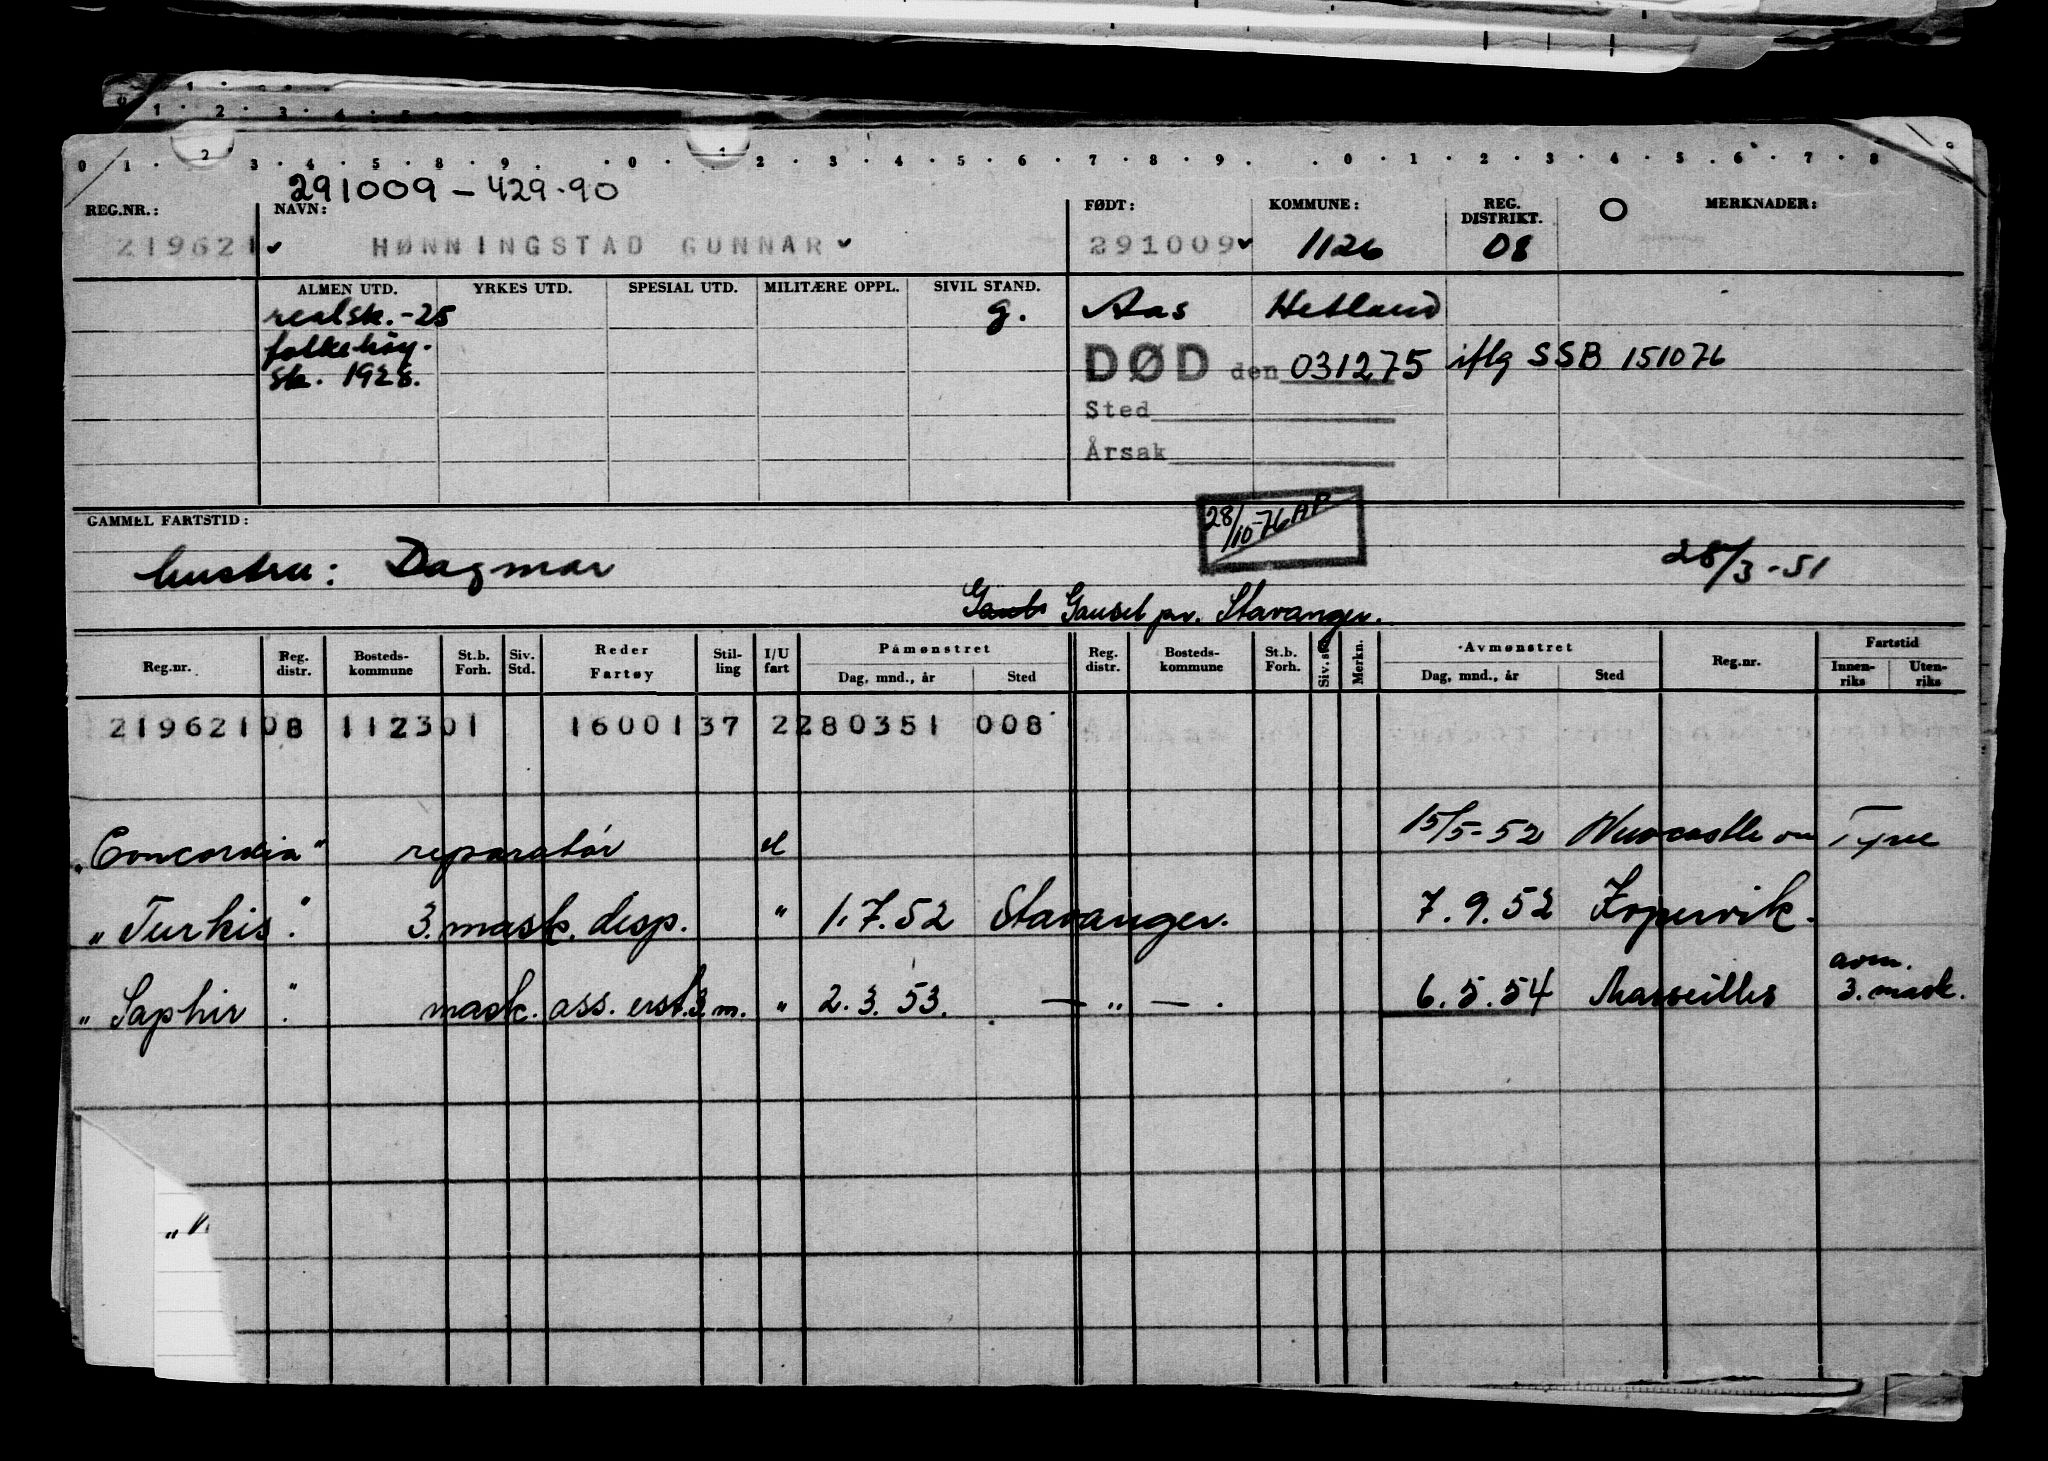 0 1 . 2 . 3 . 4 . 5 . 8 . 9 . . 0 . 1 2 . 3 . 4 . 5 . 6 . 7 . 8 . 9 . . 0 . 1 . 2 . 3 . 4 . 5 . 6 . 7 . 8 9
291009 - 429.90
REG.NR.: NAVN: FØDT: KOMMUNE: REG. DISTRIKT. O MERKNADER:
219621 HØNNINGSTAD GUNNAR 291009 1126 08
ALMEN UTD. YRKES UTD. SPESIAL UTD. MILITÆRE OPPL. SIVIL STAND.
realsk.-25 g. Aas Hetland
folkehøy-
sk. 1928.
DØD den 031275 iflg SSB 151076
Sted
Årsak
GAMMEL FARTSTID:
28/10-76 AP
hustru: Dagmar 28/3-51
Gausel pr. Stavanger.
Reg.nr. Reg. distr. Bosteds-kommune St.b. Forh. Siv. Std. Reder Fartøy Stil-ling I/U fart Påmønstret Dag, mnd., år Sted Reg. distr. Bosteds-kommune St.b. Forh. Siv. st. Merkn. Avmønstret Dag, mnd., år Sted Reg.nr. Fartstid Innen-riks Uten-riks
219621 08 1123 01 16001 37 2 280351 008
"Concordia" reparatør u 15/5-52 Newcastle on Tyne
"Turkis". 3. mask. disp. " 1.7.52 Stavanger. 7.9.52 Kopervik.
"Saphir". mask. ass. erst. 3 m. " 2.3.53. — " — . 6.5.54 Marseilles avm. 3. mask.